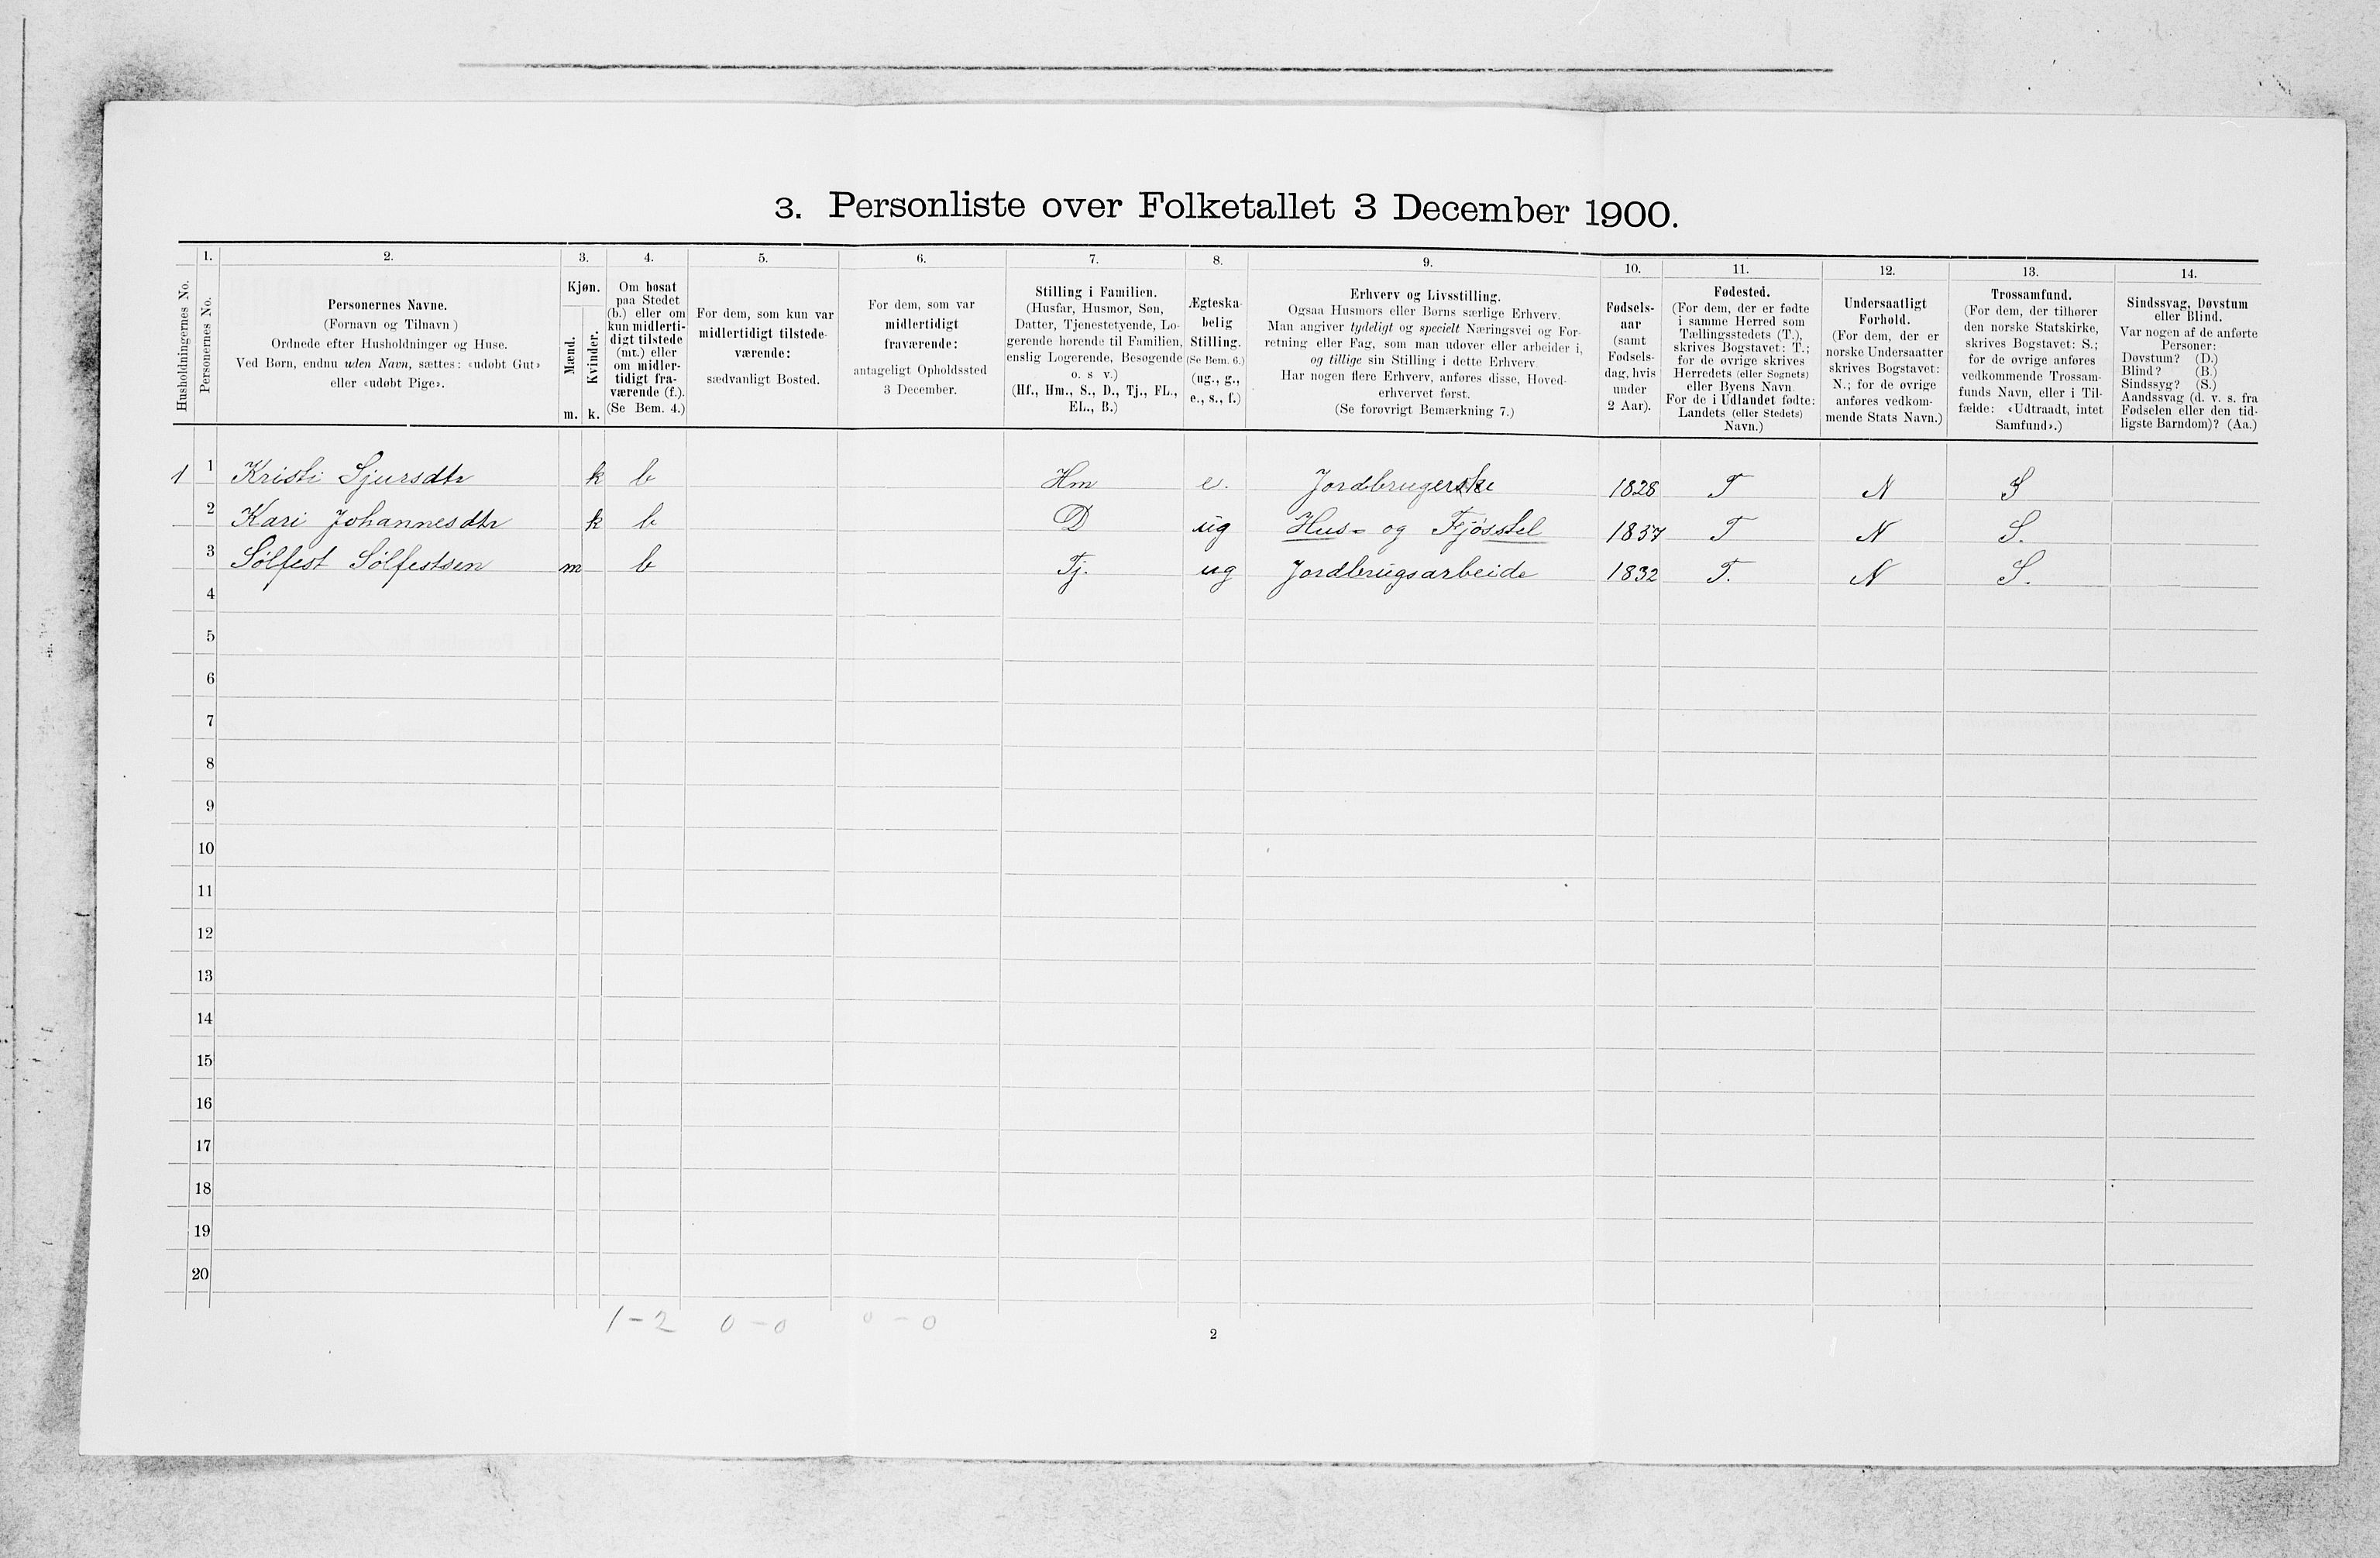 3. Personliste over Folketallet 3 December 1900.
Husholdningernes No.
1. Personernes No.
2. Personernes Navne.
(Fornavn og Tilnavn)
Ordnede efter Husholdninger og Huse.
Ved Børn, endnu uden Navn, sættes: «udøbt Gut»
eller «udøbt Pige».
3. Kjøn.
Mænd. m.
Kvinder. k.
4. Om bosat
paa Stedet
(b.) eller om
kun midlerti-
digt tilstede
(mt.) eller
om midler-
tidigt fra-
værende (f.).
(Se Bem. 4.)
5. For dem, som kun var
midlertidigt tilstede-
værende:
sædvanligt Bosted.
6. For dem, som var
midlertidigt
fraværende:
antageligt Opholdssted
3 December.
7. Stilling i Familien.
(Husfar, Husmor, Søn,
Datter, Tjenestetyende, Lo-
gerende hørende til Familien,
enslig Logerende, Besøgende
o. s v.)
(Hf., Hm., S., D., Tj., FL.,
EL., B.)
8. Ægteska-
belig
Stilling.
(Se Bem. 6.)
(ug., g.,
e., s., f.)
9. Erhverv og Livsstilling.
Ogsaa Husmors eller Børns særlige Erhverv.
Man angiver tydeligt og specielt Næringsvei og For-
retning eller Fag, som man udøver eller arbeider i,
og tillige sin Stilling i dette Erhverv
Har nogen flere Erhverv, anføres disse, Hoved-
erhvervet først.
(Se forøvrigt Bemærkning 7.)
10. Fødsels-
aar
(samt
Fødsels-
dag, hvis
under
2 Aar).
11. Fødested.
(For dem, der er fødte
i samme Herred som
Tællingsstedets (T.),
skrives Bogstavet: T.;
for de øvrige skrives
Herredets (eller Sognets)
eller Byens Navn.
For de i Udlandet fødte:
Landets (eller Stedets)
Navn.)
12. Undersaatligt
Forhold.
(For dem, der er
norske Undersaatter
skrives Bogstavet:
N.; for de øvrige
anføres vedkom-
mende Stats Navn.)
13. Trossamfund.
(For dem, der tilhører
den norske Statskirke,
skrives Bogstavet: S.;
for de øvrige anføres
vedkommende Trossam-
funds Navn, eller i Til-
fælde: «Udtraadt, intet
Samfund».)
14. Sindssvag, Døvstum
eller Blind.
Var nogen af de anførte
Personer:
Døvstum? (D.)
Blind? (B.)
Sindssyg? (S.)
Aandssvag (d. v. s. fra
Fødselen eller den tid-
ligste Barndom)? (Aa.)
1 1 Kristi Sjursdtr k b Hm e. Jordbrugerske 1828 T N S
2 Kari Johannesdtr k b D ug Hus- og Fjøsstel 1857 T N S.
3 Sølfest Sølfestsen m b Tj. ug Jordbrugsarbeide 1832 T. N S.
4
5
6
7
8
9
10
11
12
13
14
15
16
17
18
19
20
1-2 0-0 0-0
2